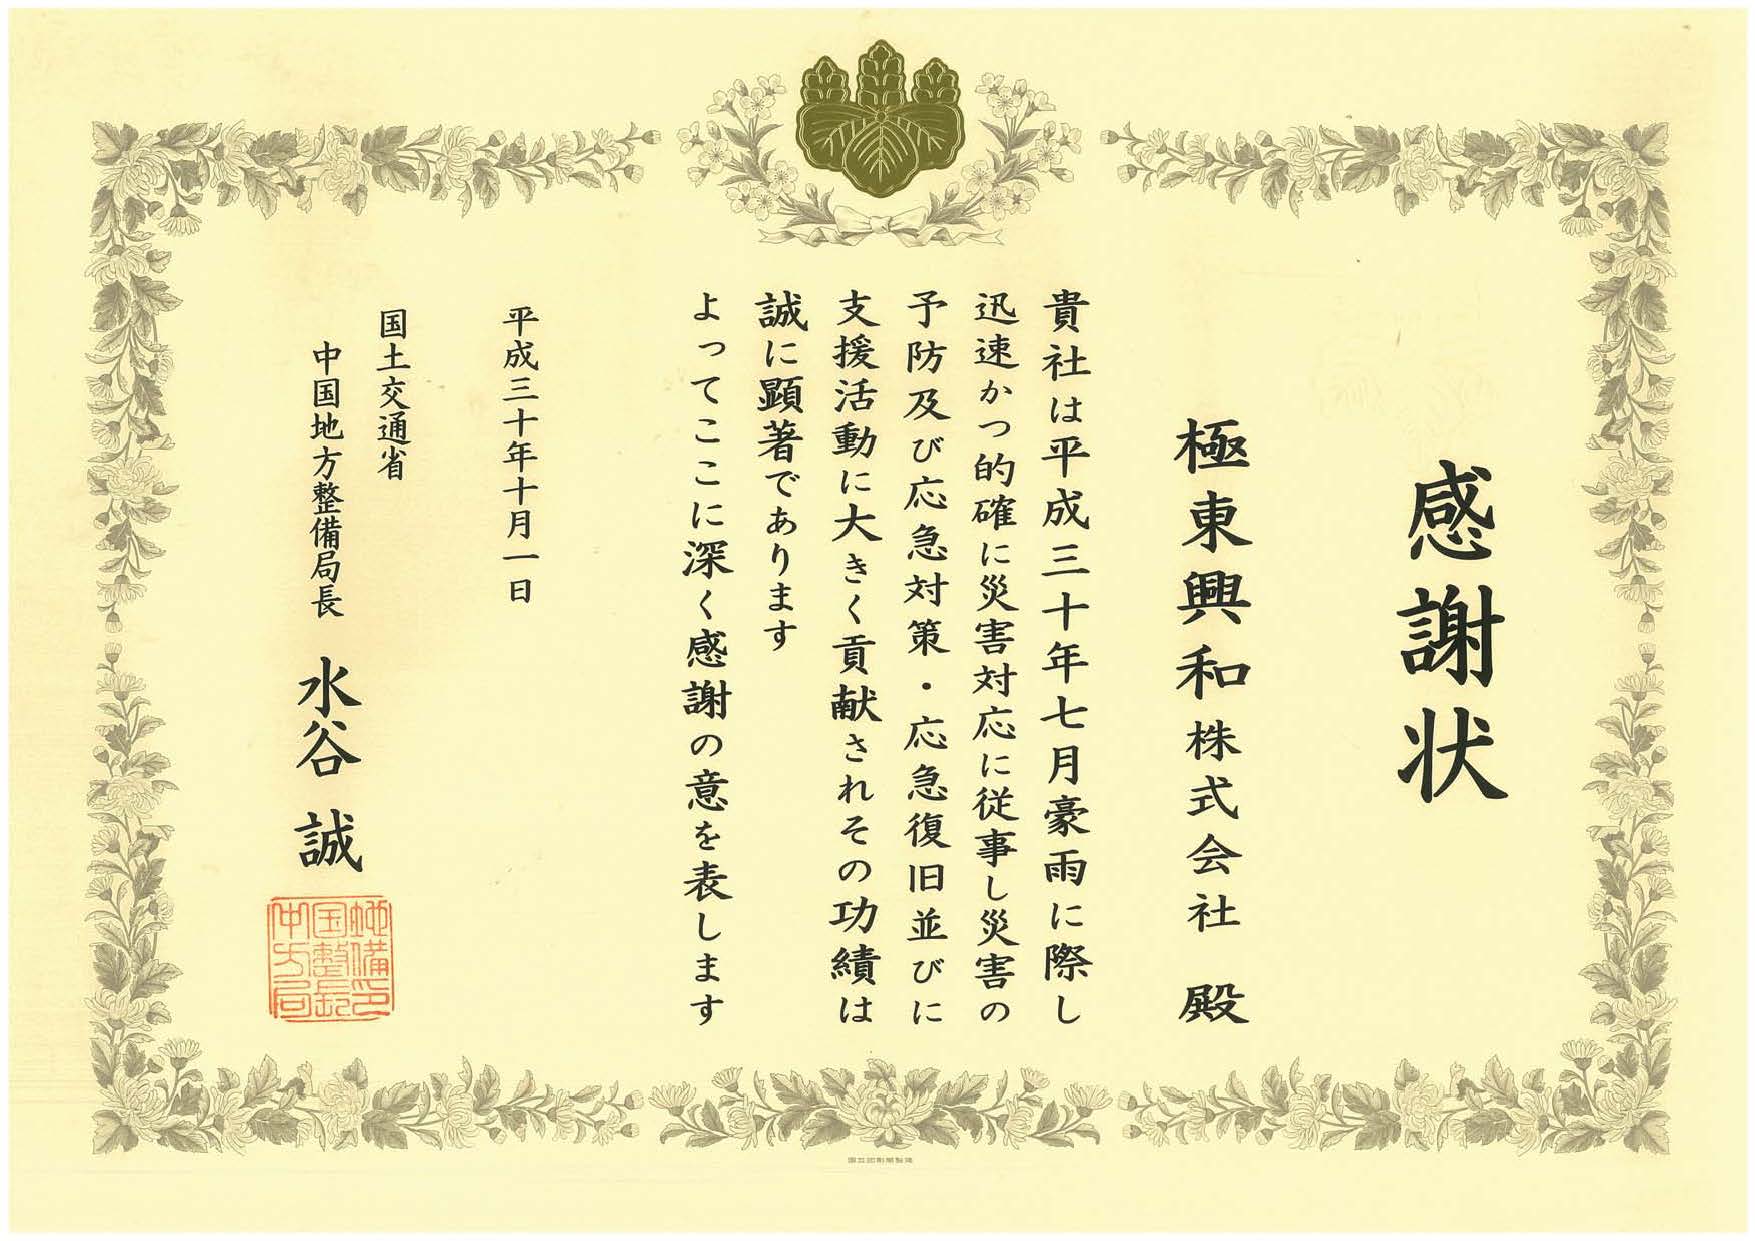 感謝状
極東興和株式会社 殿
貴社は平成三十年七月豪雨に際し
迅速かつ的確に災害対応に従事し災害の
予防及び応急対策・応急復旧並びに
支援活動に大きく貢献されその功績は
誠に顕著であります
よってここに深く感謝の意を表します
平成三十年十月一日
国土交通省
中国地方整備局長 水谷 誠
地備印
国整長
中方局